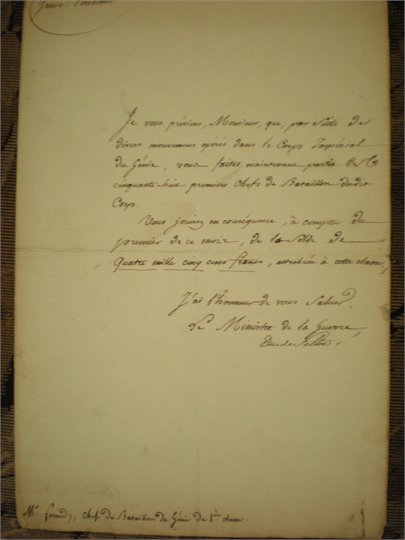 Je vous préviens, Monsieur, que, par Suite de
divers mouvemens opérés dans le Corps Impérial
du Génie, vous faites maintenant partie des
cinquante-huit premiers Chefs de Bataillon dudit
Corps.
Vous jouirez en conséquence, à compter du
premier de ce mois, de la Solde de
Quatre mille cinq cens francs, attribuée à cette classe,
J'ai l'honneur de vous Saluer.
Le Ministre de la Guerre,
Duc de Feltre.
Mr. Chef de Bataillon de Génie de 1ère classe.